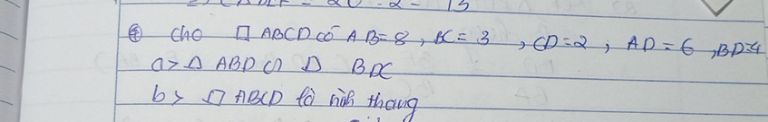 ④ Cho □ ABCD có AB=8, BC=3, CD=2, AD=6, BD=4
a> Δ ABD ∽ Δ BDC
b> □ ABCD là hình thang